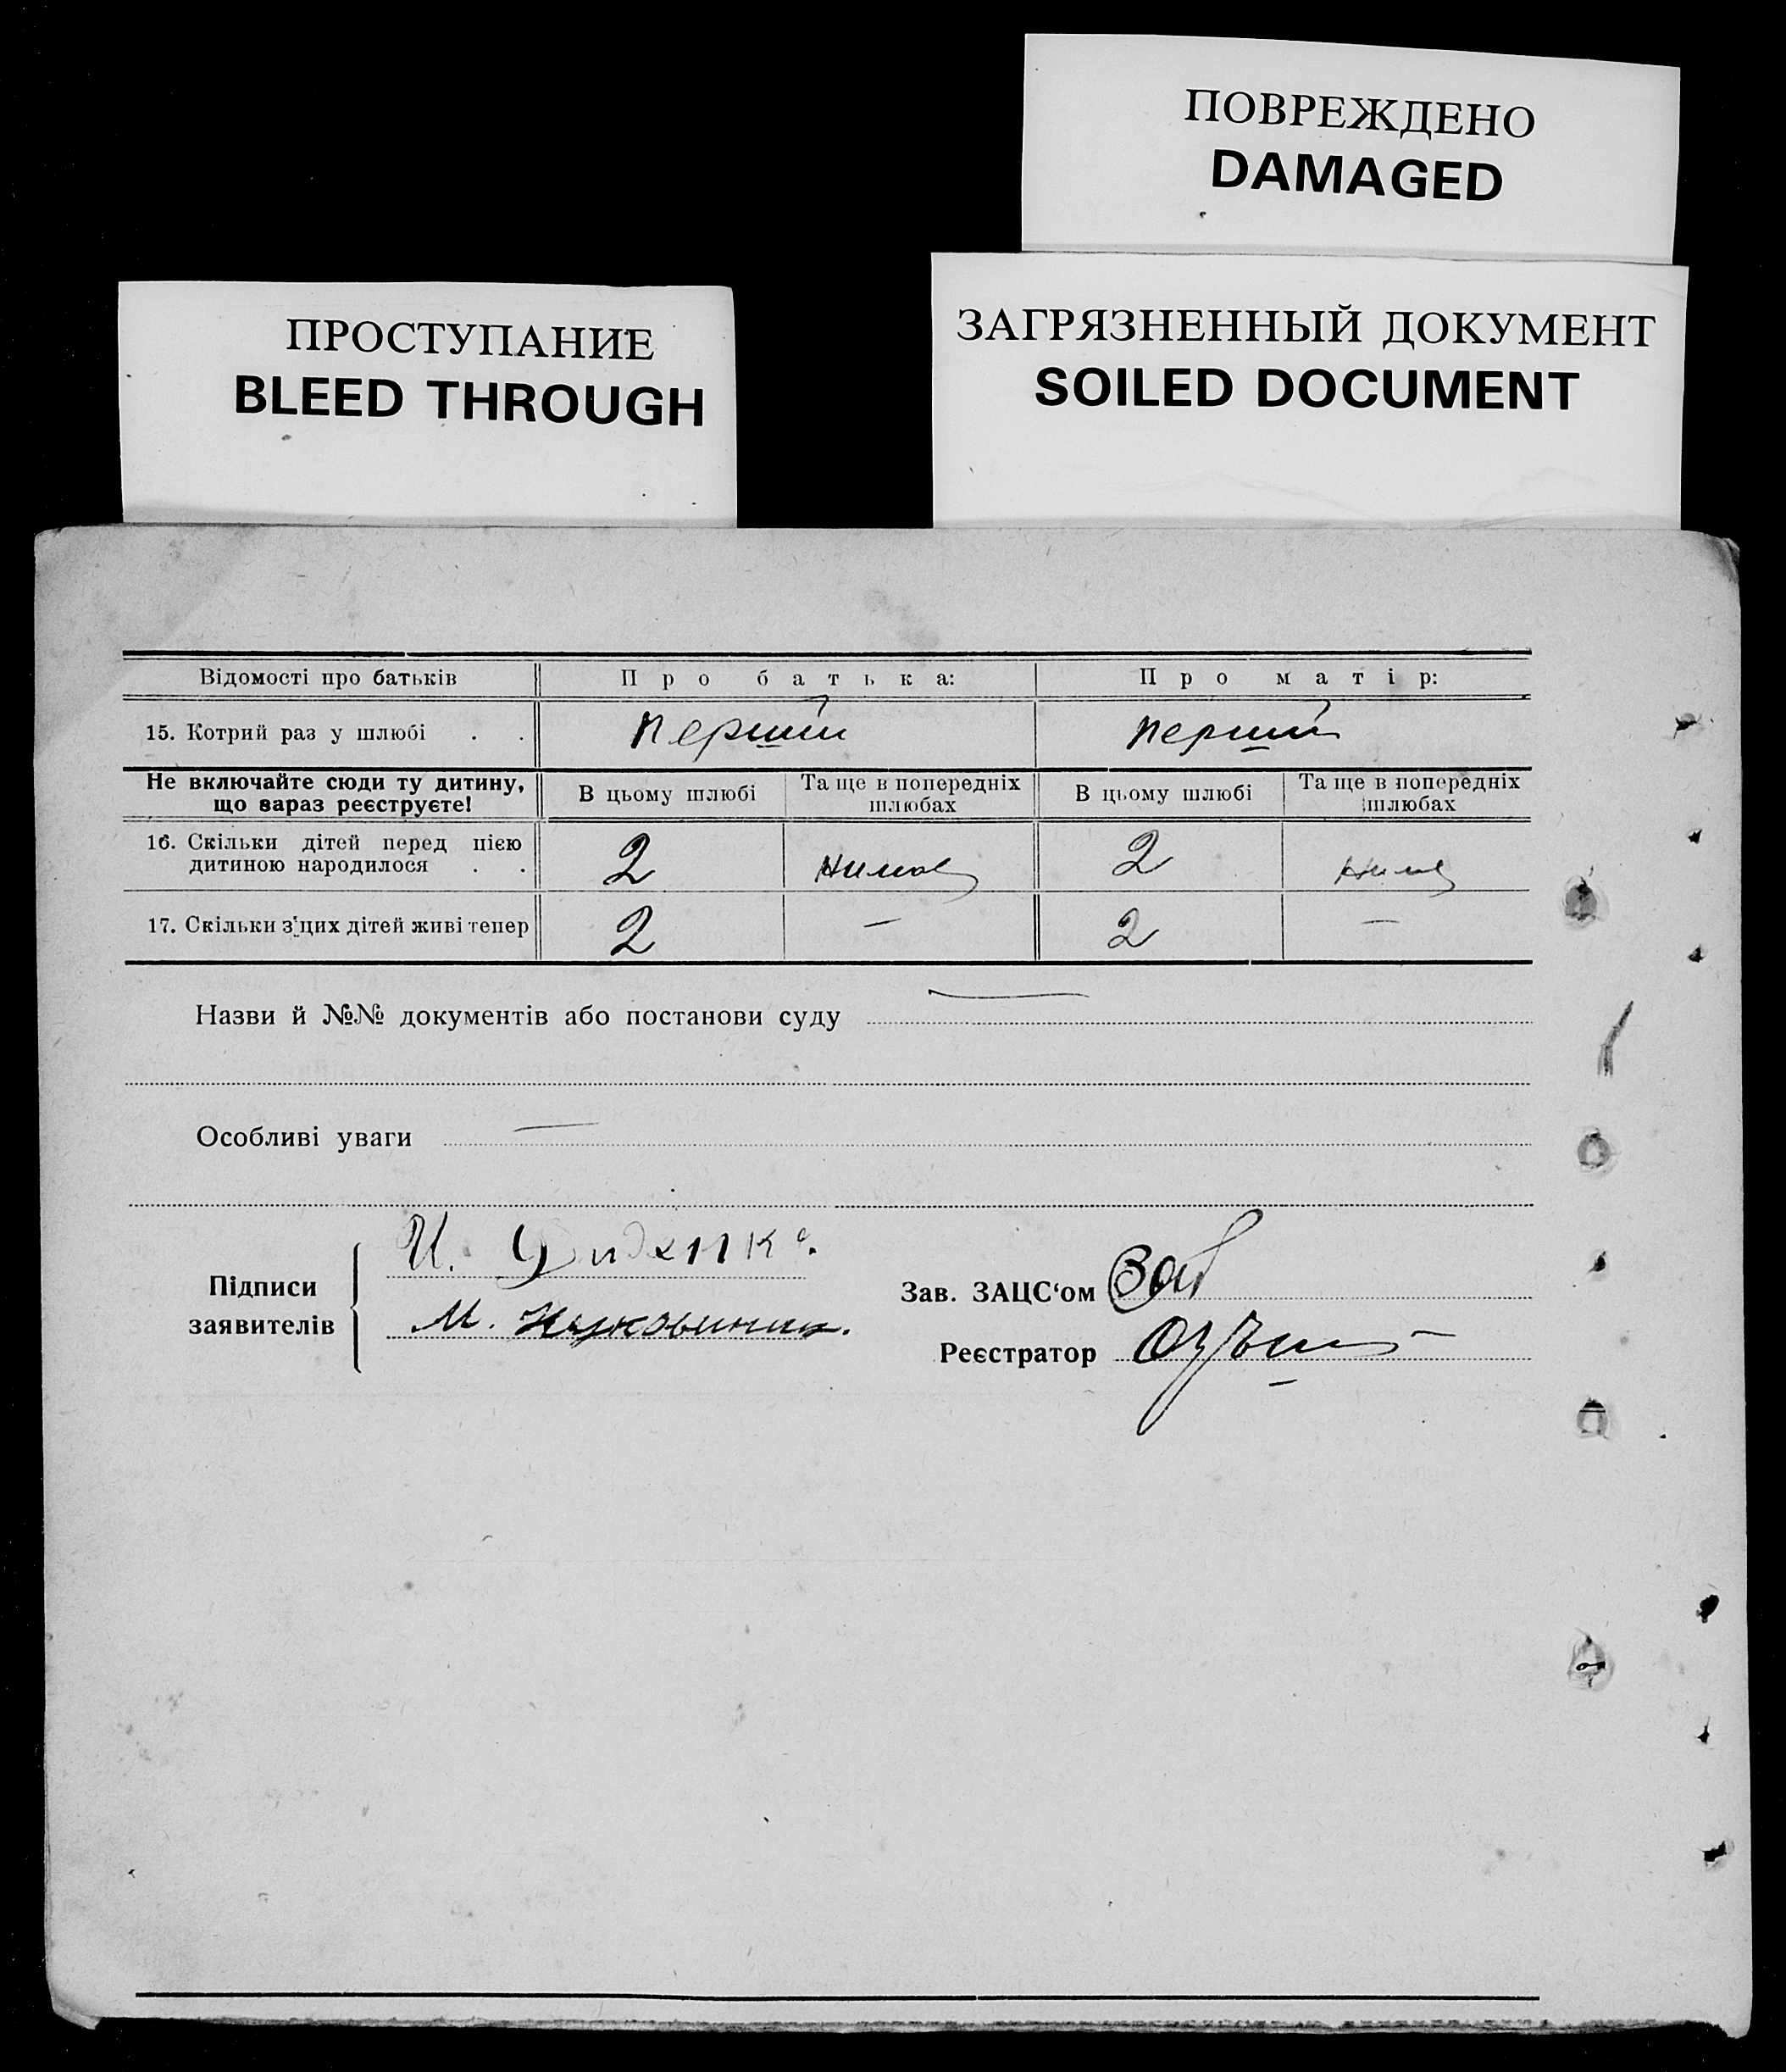 ПОВРЕЖДЕНО
DAMAGED
ПРОСТУПАНИЕ
BLEED THROUGH
ЗАГРЯЗНЕННЫЙ ДОКУМЕНТ
SOILED DOCUMENT
Відомості про батьків Про батька: Про матір:
15. Котрий раз у шлюбі . . перший перший
Не включайте сюди ту дитину, що зараз реєструєте! В цьому шлюбі Та ще в попередніх шлюбах В цьому шлюбі Та ще в попередніх шлюбах
16. Скільки дітей перед цією
дитиною народилося . . 2 2
17. Скільки з цих дітей живі тепер 2 — 2 —
Назви й №№ документів або постанови суду —
Особливі уваги —
Підписи
заявителів
И.
М.
Зав. ЗАЦС‘ом
Реєстратор